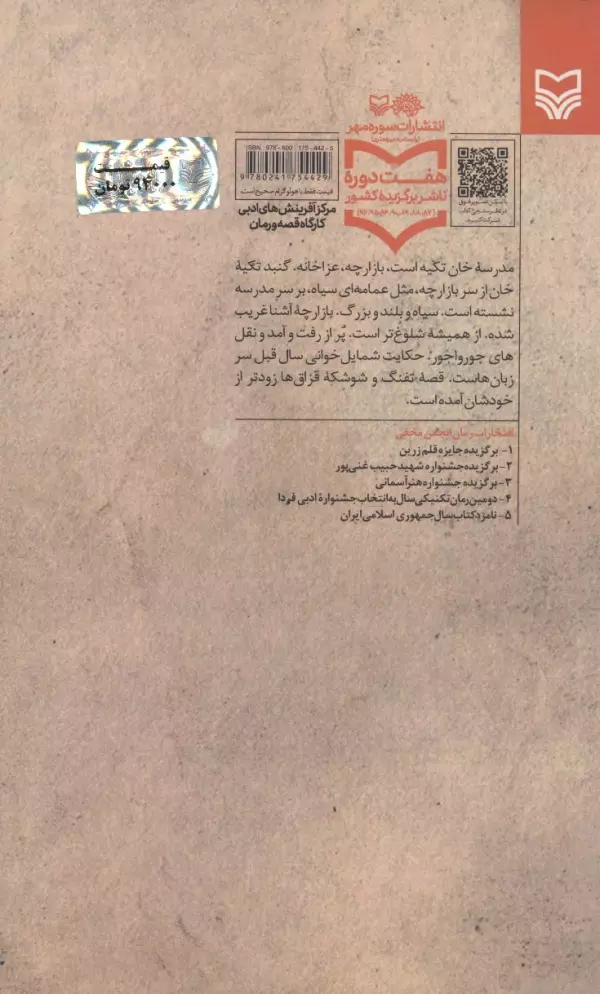 انتشارات سوره مهر
هفت دورهٔ
ناشر برگزیدهٔ کشور
ISBN: 978-600-175-442-5
9 780241 754429
قیمت فقط با هولوگرام صحیح است
مرکز آفرینش‌های ادبی
کارگاه قصه و رمان
قیمت
۹۴۰۰۰ تومان
مدرسهٔ خان تکیه است، بازارچه، عزاخانه. گنبد تکیهٔ
خان از سر بازارچه، مثل عمامه‌ای سیاه، بر سر مدرسه
نشسته است. سیاه و بلند و بزرگ. بازارچهٔ آشنا غریب
شده. از همیشه شلوغ‌تر است. پُر از رفت و آمد و نقل
های جورواجور. حکایت شمایل‌خوانی سال قبل سر
زبان‌هاست. قصهٔ تفنگ و شوشکهٔ قزاق‌ها زودتر از
خودشان آمده است.
افتخارات رمان انجمن مخفی
۱- برگزیده جایزه قلم زرین
۲- برگزیده جشنواره شهید حبیب غنی‌پور
۳- برگزیده جشنواره هنر آسمانی
۴- دومین رمان تکنیکی سال به انتخاب جشنوارهٔ ادبی فردا
۵- نامزد کتاب سال جمهوری اسلامی ایران